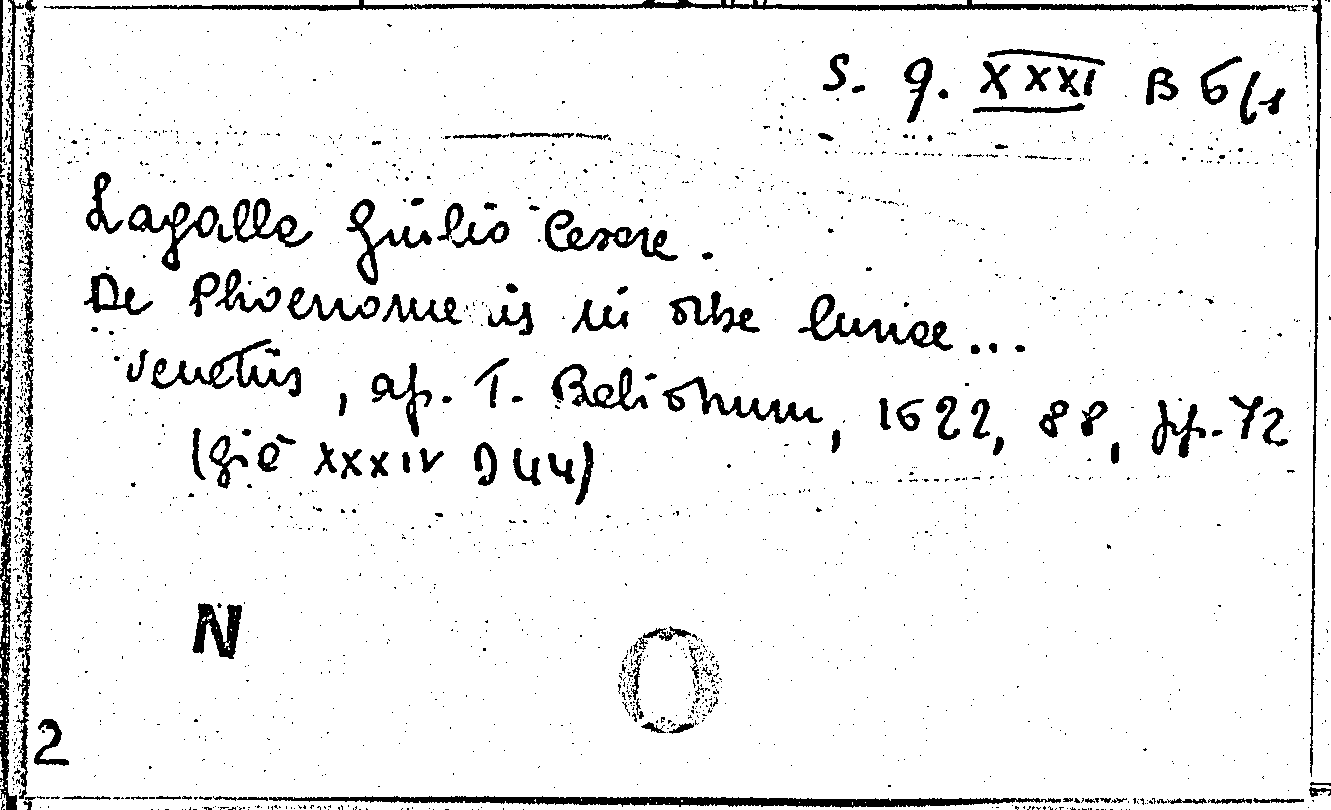 S. q. XXXI B 6/1
Lagalla Giulio Cesare.
De Phoenomenis in orbe lunae...
Venetiis, ap. T. Balionum, 1622, 88, pp. 72
(già XXXIV D 44)
N
2